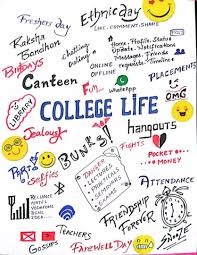 Freshers Day
Ethnic day
LIKE-COMMENT-SHARE
Raksha
Bandhan
Chatting
outing
Home. Profile. Status
Update. Notifications
Messages. Friends
requests. Timeline
Birthdays
ONLINE
OFFLINE
PLACEMENTS
Canteen
Fun
WhatsApp
OMG
LIBRARY
COLLEGE LIFE
Jealousy
BUNKS!
hangouts
FIGHTS
POCKET
MONEY
PARTY
Selfies
DANGER
LECTURES
PRACTICALS
SEMINARS
EXAMS
ATTENDANCE
FRIENDSHIP
FOREVER
TEACHERS
GOSSIPS
FAREWELL DAY